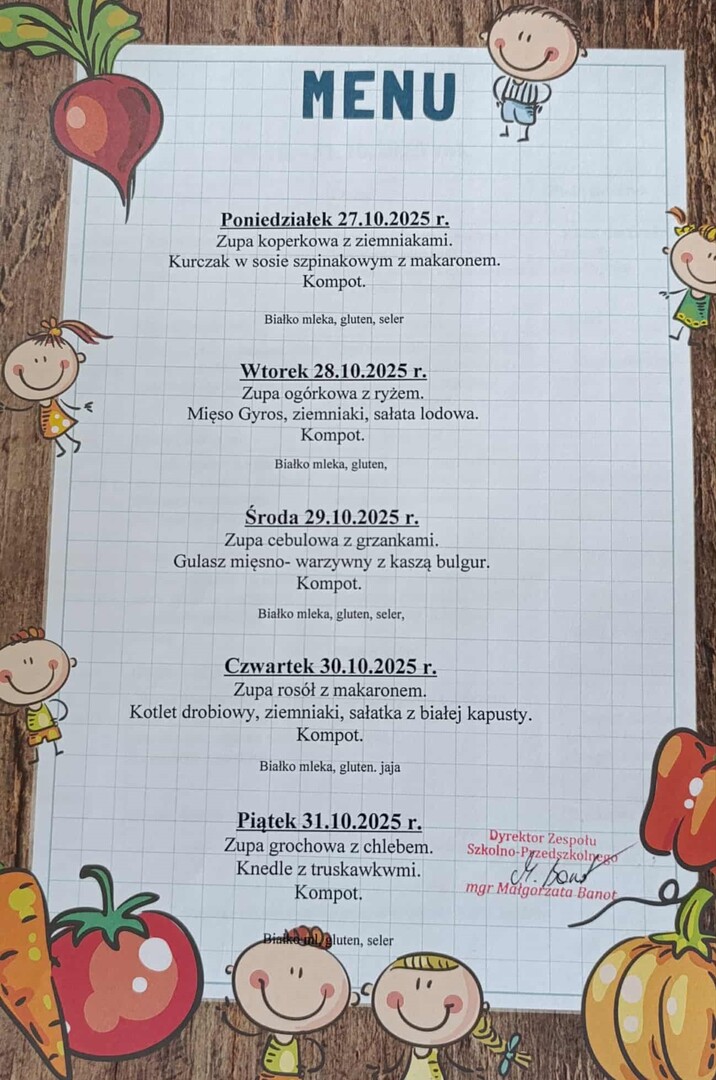 MENU
Poniedziałek 27.10.2025 r.
Zupa koperkowa z ziemniakami.
Kurczak w sosie szpinakowym z makaronem.
Kompot.
Białko mleka, gluten, seler
Wtorek 28.10.2025 r.
Zupa ogórkowa z ryżem.
Mięso Gyros, ziemniaki, sałata lodowa.
Kompot.
Białko mleka, gluten,
Środa 29.10.2025 r.
Zupa cebulowa z grzankami.
Gulasz mięsno- warzywny z kaszą bulgur.
Kompot.
Białko mleka, gluten, seler,
Czwartek 30.10.2025 r.
Zupa rosół z makaronem.
Kotlet drobiowy, ziemniaki, sałatka z białej kapusty.
Kompot.
Białko mleka, gluten. jaja
Piątek 31.10.2025 r.
Zupa grochowa z chlebem.
Knedle z truskawkwmi.
Kompot.
Białko gluten, seler
Dyrektor Zespołu
Szkolno-Przedszkolnego
M. Banot
mgr Małgorzata Banot